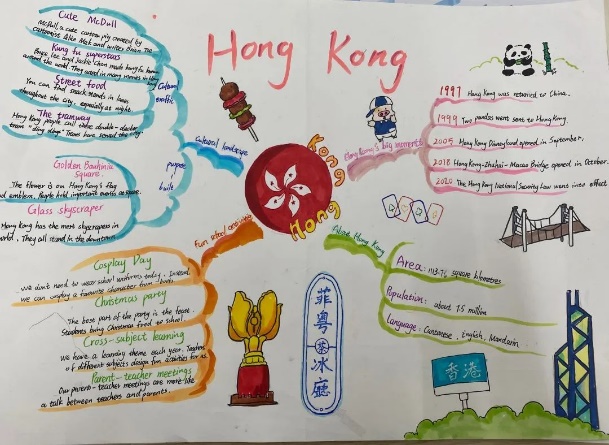 Hong Kong
Cute McDull
McDull, a cute cartoon pig created by
cartoonist Alice Mak and writer Brian Tse
Kung fu superstars
Bruce Lee and Jackie Chan made kung fu known
around the world. They starred in many movies in
Street food
You can find snack stands in lanes
throughout the city, especially at night.
The tramway
Hong Kong people call these double-decker
tram "ding dings". Trams have served the city
Cultural
exotic
Cultural landscape
purpose
built
Golden Bauhinia
Square
The flower is on Hong Kong's flag
and emblem. People hold important events at
Glass skyscraper
Hong Kong has the most skyscrapers in
world. They all stand in the downtown.
Hong Kong
Hong Kong's big moments
1997 Hong Kong was returned to China.
1999 Two pandas were sent to Hong Kong.
2005 Hong Kong Disneyland opened in September.
2018 Hong Kong-Zhuhai-Macao Bridge opened in October.
2020 The Hong Kong National Security Law went into effect
About Hong Kong
Area: 1113.76 square kilometres
Population: about 7.5 million
Language: Cantonese, English, Mandarin
Fun school activities
Cosplay Day
We don't need to wear school uniforms today. Instead,
we can cosplay a favourite character from a book.
Christmas party
The best part of the party is the feast.
Students bring Christmas food to school.
Cross-subject learning
We have a learning theme each year. Teachers
of different subjects design fun activities for us.
Parent-teacher meetings
Our parent-teacher meetings are more like
a talk between teachers and parents.
菲粤茶冰廳
香港